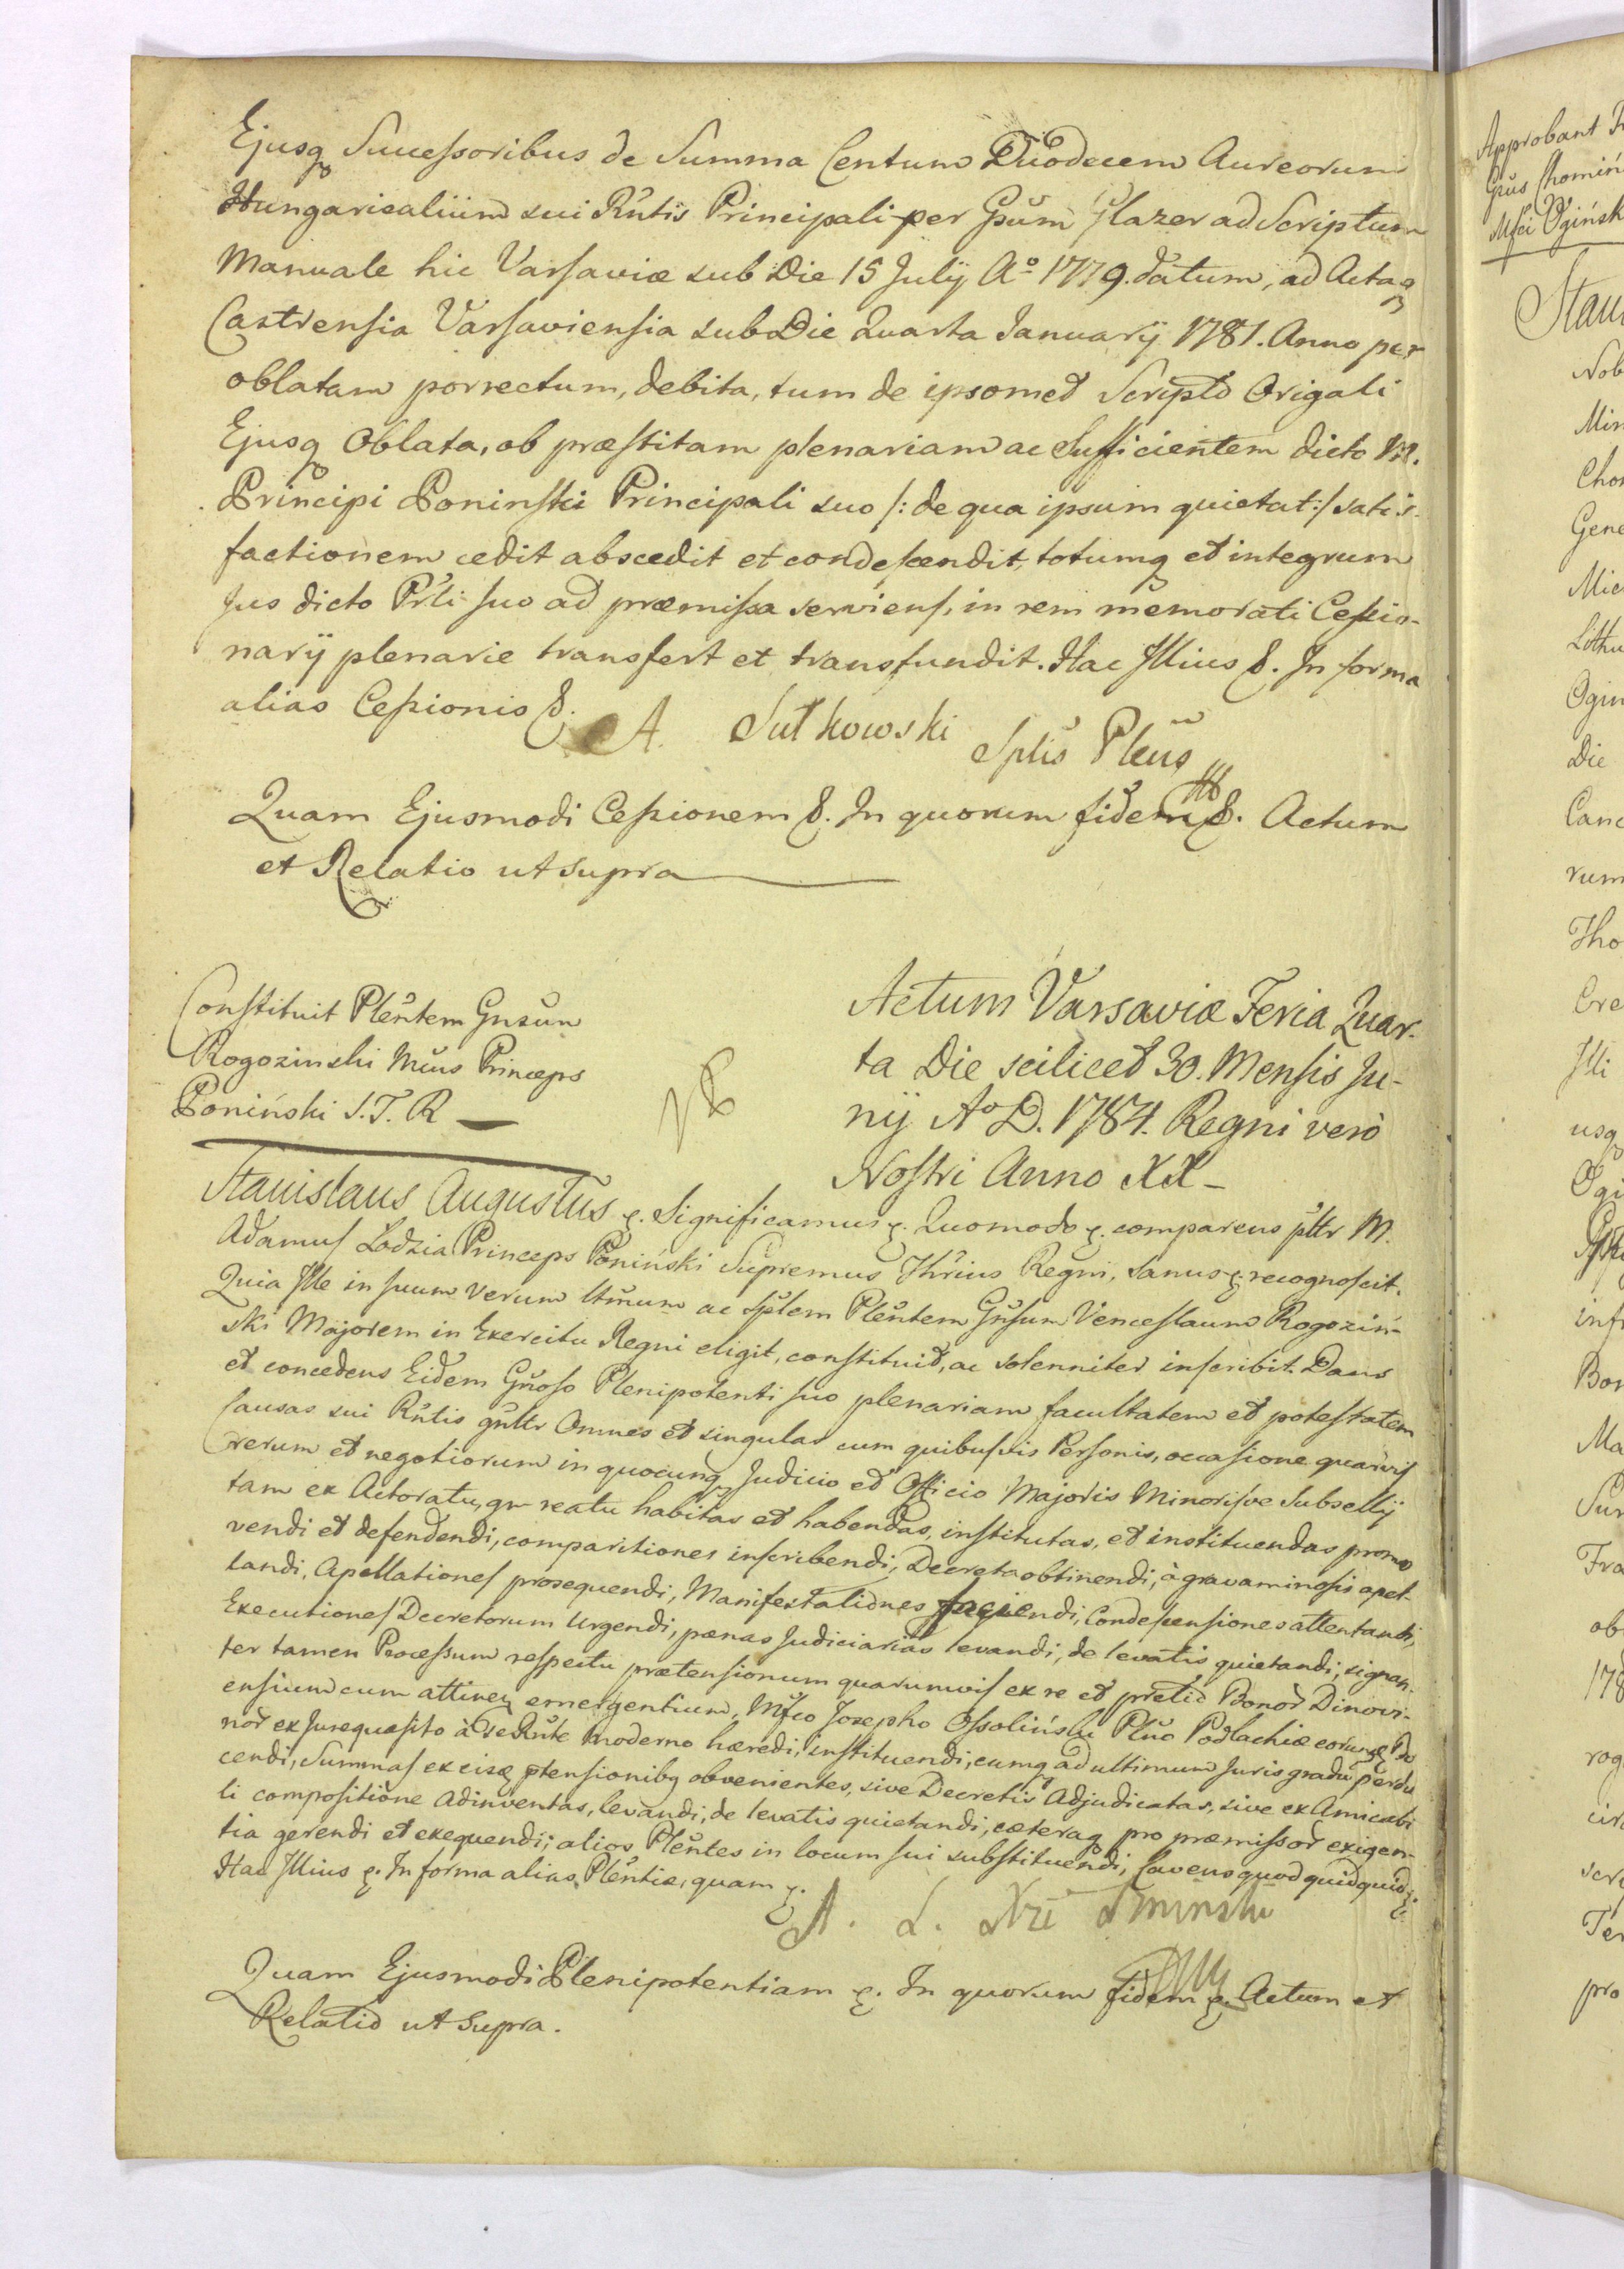 Ejusq Successoribus de Summa Centum Duodecem Aureorum
Hungaricalium sui Rntis Principali per Gsum Glazer ad Scriptum
Manuale hic Varsaviæ sub Die 15 Julij Aº 1779. datum, ad Actaq
Castrensia Varsaviensia sub Die Quarta Januarij 1781. Anno per
oblatam porrectum, debita, tum de ipsomet Scripto Origali
Ejusq Oblata, ob præstitam plenariam ac Sufficientem dicto M.
Principi Poninski Principali suo /: de qua ipsum quietat :/ satis-
factionem cedit abscedit et condescendit, totumq et integrum
Jus dicto Prli suo ad præmissa serviens, in rem memorati Cessio-
narij plenarie transfert et transfundit. Hac Illius &. In forma
alias Cessionis &.
A. Sułkowski Splis Plens
Quam Ejusmodi Cessionem &. In quorum fidem &. Actum
et Relatio ut supra
Constituit Plentem Gnsum
Rogozinski Mcus Princeps
Poniński S. T. R
Actum Varsaviæ Feria Quar-
ta Die scilicet 30. Mensis Ju-
nij Aº D. 1784. Regni verò
Nostri Anno XX
Stanislaus Augustus &. Significamus &. Quomodo &. comparens pltr M.
Adamus Lodzia Princeps Poniński Supremus Thrius Regni, sanus &. recognoscit.
Quia Ille in suum verum ltmum ac splem Plentem Gnsum Venceslaum Rogoziń-
ski Majorem in Exercitu Regni eligit, constituit, ac solenniter inscribit. Dans
et concedens Eidem Gnoso Plenipotenti suo plenariam facultatem et potestatem
Causas sui Rntis gnltr Omnes et singulas cum quibusvis Personis, occasione quarvis
rerum et negotiorum in quocunq Judicio et Officio Majoris Minorisve Subsellij
tam ex Actoratu, qm reatu habitas et habendas, institutas, et instituendas promo
vendi et defendendi, comparitiones inscribendi, Decreta obtinendi, à gravaminosis apel-
landi, Apellationes prosequendi, Manifestationes faciendi, Condescensiones attentandi,
Executiones Decretorum Urgendi, pænas Judiciarias levandi, de levatis quietandi, signan-
ter tamen Processum respectu prætensionum quarumvis ex re et pretio Bonor Dinovi-
ensium cum attinen emergentium, Mfco Josepho Ossoliński Pltno Podlachiæ eorumq Bo
nor ex Jurequæsito à se Rnte moderno hæredi, instituendi, eumq ad ultimum Juris gradu perdu
cendi, Summas ex eisq ptensionibq obvenientes, sive Decretis Adjudicatas, sive ex Amicabi
li compositione adinventas, levandi, de levatis quietandi, cæteraq pro præmissor exigen-
tia gerendi et exequendi; alios Plentes in locum sui substituendi, Cavens quod quidquid &.
Hac Illius &. In forma alias Plentiæ, quam &.
A. L.
Quam Ejusmodi Plenipotentiam &. In quorum fidem &. Actum et
Relatio ut Supra.
Approbant
Gsus Chomiń
Mfci Ogińsk
Stani
Nob
Min
Chom
Gene
Mic
Lithu
Ogin
Die
Canc
rum
Tho
Cre
Illi
usq
Ogi
infr
Bon
Ma
Sur
Fra
ob
178
rog
circ
scri
Ter
pro